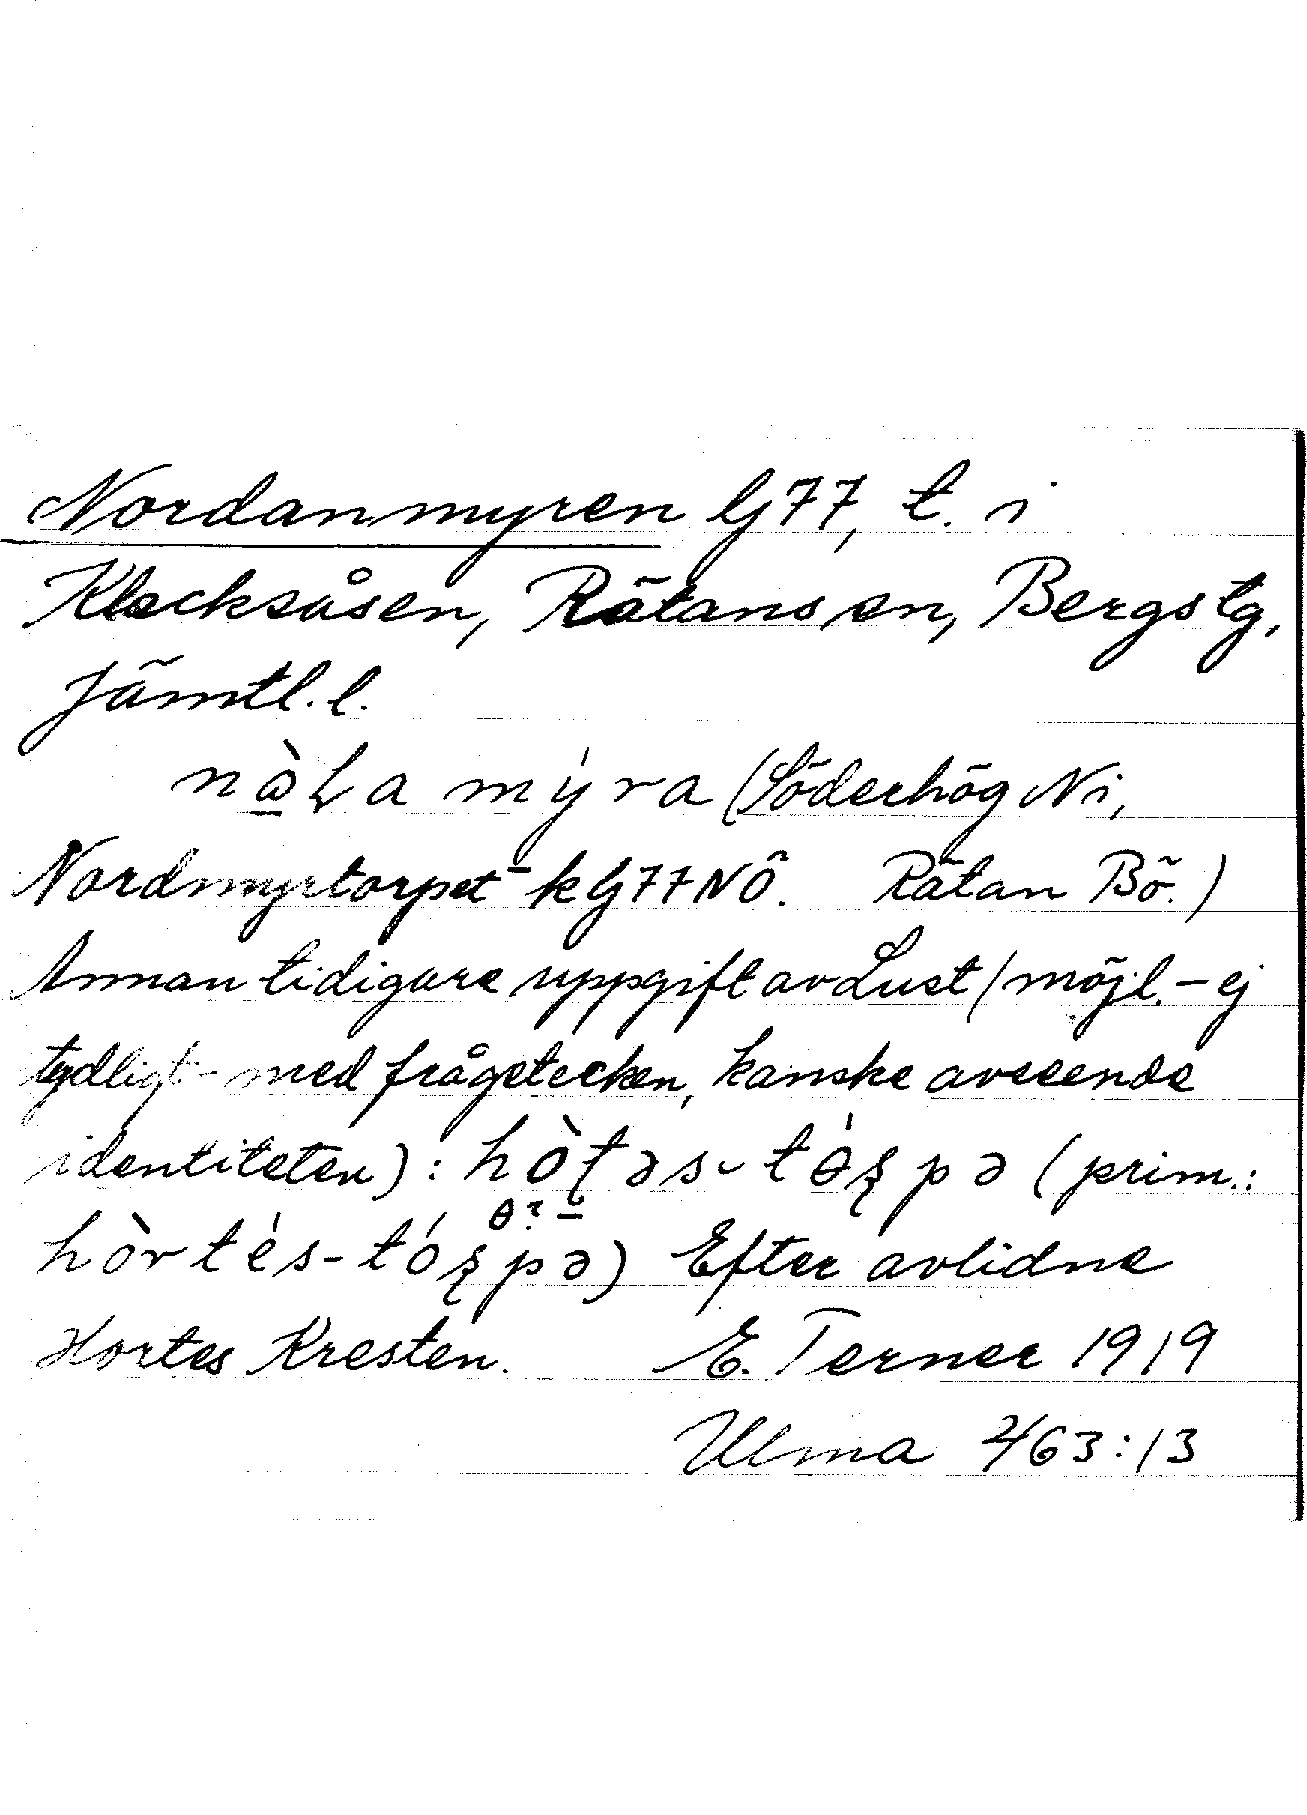 Nordanmyren G77, t. i
Klacksåsen, Rätans sn, Bergs tg,
Jämtl. l.
nòLa mýra (Söderhög Ni,
Nordmyrtorpet - k G77NÖ. Rätan Bö.)
Annan tidigare uppgift av Lust (möjl. - ej
tydligt - med frågetecken, kanske avseende
identiteten): hòt̨əs-tɵ́s̨pə (prim.:
ɵ?
hòrtés-tós̨pə) Efter avlidne
Hortes Kresten. E. Terner 1919
Ulma 463:13